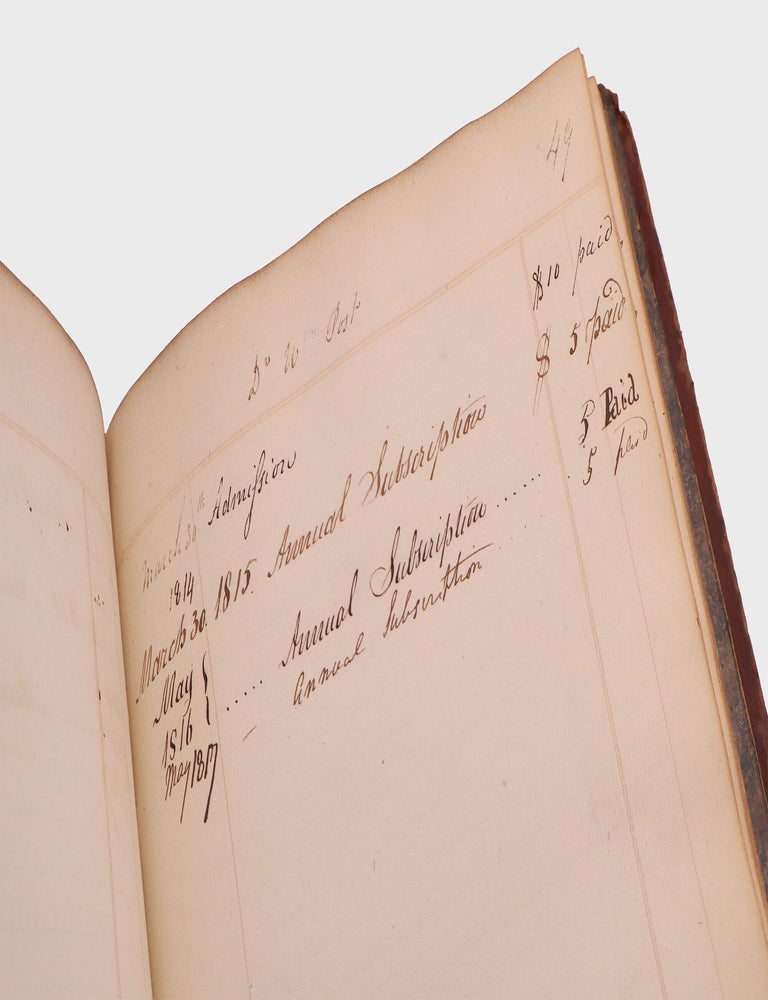 49
Dr Wm Post
March 30th Admiſsion $10 paid
1814
March 30. 1815. Annual Subscription $ 5 paid
May } ..... Annual Subscription ...... 5 Paid
1816
May 1817 – Annual Subscription ..... 5 paid